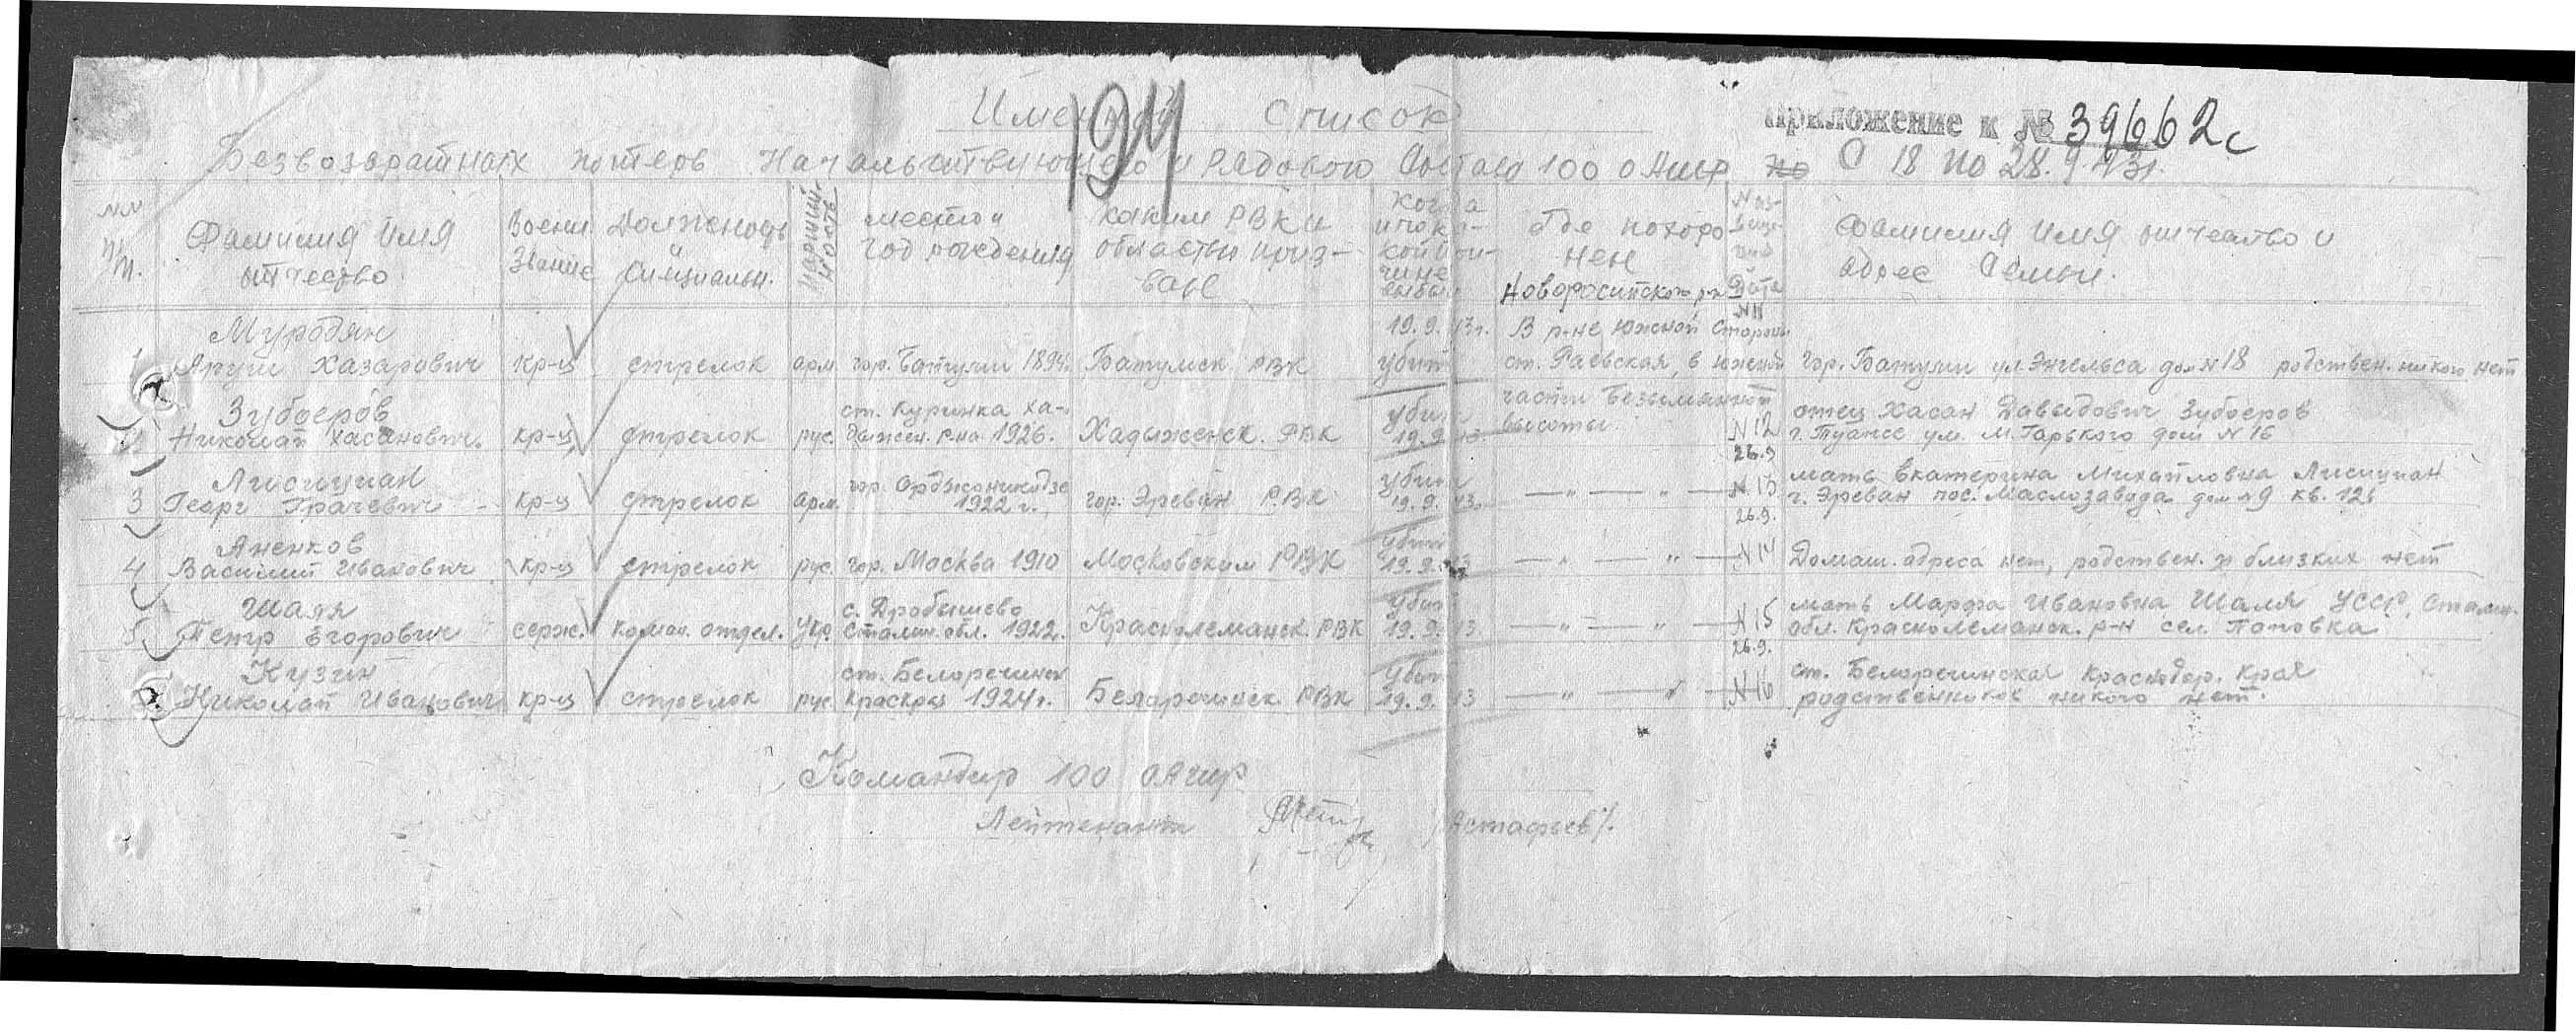 Именной Список
194
Приложение к № 39662с
Безвозвратных потерь Начальствующего и Рядового Состава 100 ОАШР по С 18 по 28.9.43г.
№№ п/п.
Фамилия Имя отчество
Воени Звание
Должность и специальн.
место и год рождения
каким РВК и областью приз-
ван
Когда и по ка-
кой при-
чине выбыл
Где похоро
нен
Новороссийского р-н
Дата
Фамилия Имя отчество и
адрес Семьи.
Муродян
19.9.43г. В р-не южной стороны
№11
1 Аруш Хазарович кр-ц стрелок арм. гор. Батуми 1894г. Батумск. РВК убит ст. Раевская, в южной гор. Батуми ул. Энгельса дом №18 родствен. никого нет
Зубоеров ст. Куринка Ха- убит части Безымянной отец Хасан Давыдович Зубоеров
2 Николай Хасанович. кр-ц стрелок рус. дыжен. р-на 1926. Хадыженск. РВК 19.9.43. высоты. №12 г. Туапсе ул. М. Горького дом №16
26.9
Лисициан гор. Орджоникидзе убит мать Екатерина Михайловна Лисициан
3 Георг Грачевич кр-ц стрелок арм. 1922г. гор. Эреван РВК 19.9.43. — " — " — №13 г. Эреван пос. Маслозавода дом №9 кв. 126
26.9.
Аненков убит
4 Василий Иванович кр-ц стрелок рус. гор. Москва 1910 Московским РВК 19.9.43 — " — " — №14 Домаш. адреса нет, родствен. и близких нет
Шаля с. Дробышево убит мать Марфа Ивановна Шаля УССР, Сталин.
5 Петр Егорович серж. коман. отдел. Укр. Сталин. обл. 1922. Краснолиманск. РВК 19.9.43 — " — " — №15 обл. Краснолиманск. р-н сел. Поповка
26.9.
Кузин ст. Белореченск убит ст. Белореченская Краснодар. края
6. Николай Иванович кр-ц стрелок рус. Краскрая 1924г. Белореченск. РВК 19.9.43 — " — " — №16 родственников никого нет.
Командир 100 ОАШР
Лейтенант /Астафьев/.